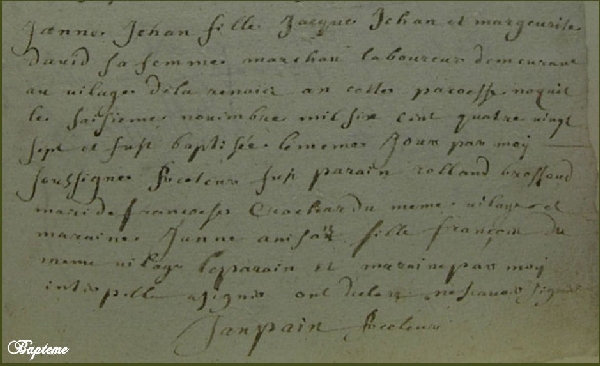 Jeanne Jehan fille Jacque Jehan et margeurite
david sa femme marchan laboureur demeurant
au vilage de la renais an cette paroesse naquit
le saisieme novimbre mil six cent quatre vingt
sept et fust baptisée le meme Jour par moy
soussigne Recteur fust parain rolland brossaud
mari de francoise du meme vilage et
maraine Janne fille françois du
meme vilage le parain et maraine par moy
de signer ont declare ne scavoir signer
Janpain Recteur
Bapteme